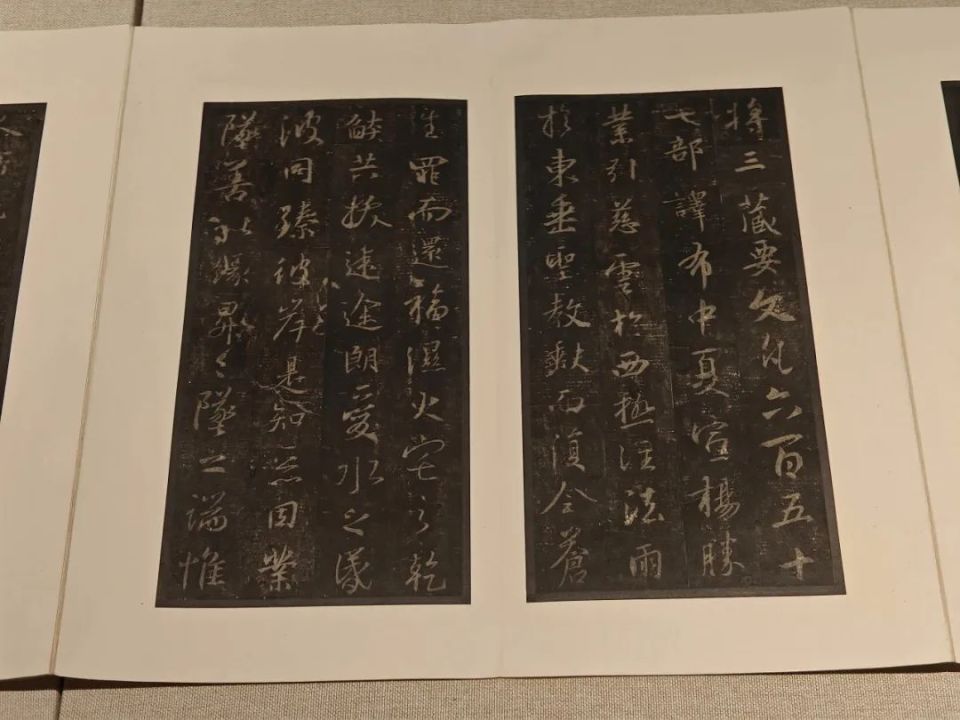 將三藏要文凡六百五十
七部譯布中夏宣揚勝
業引慈雲於西極注法雨
於東垂聖教缺而復全蒼
生罪而還福濕火宅之乾
燄共拔迷途朗愛水之昏
波同臻彼岸是知惡因業
墜善以緣昇々墜之端惟